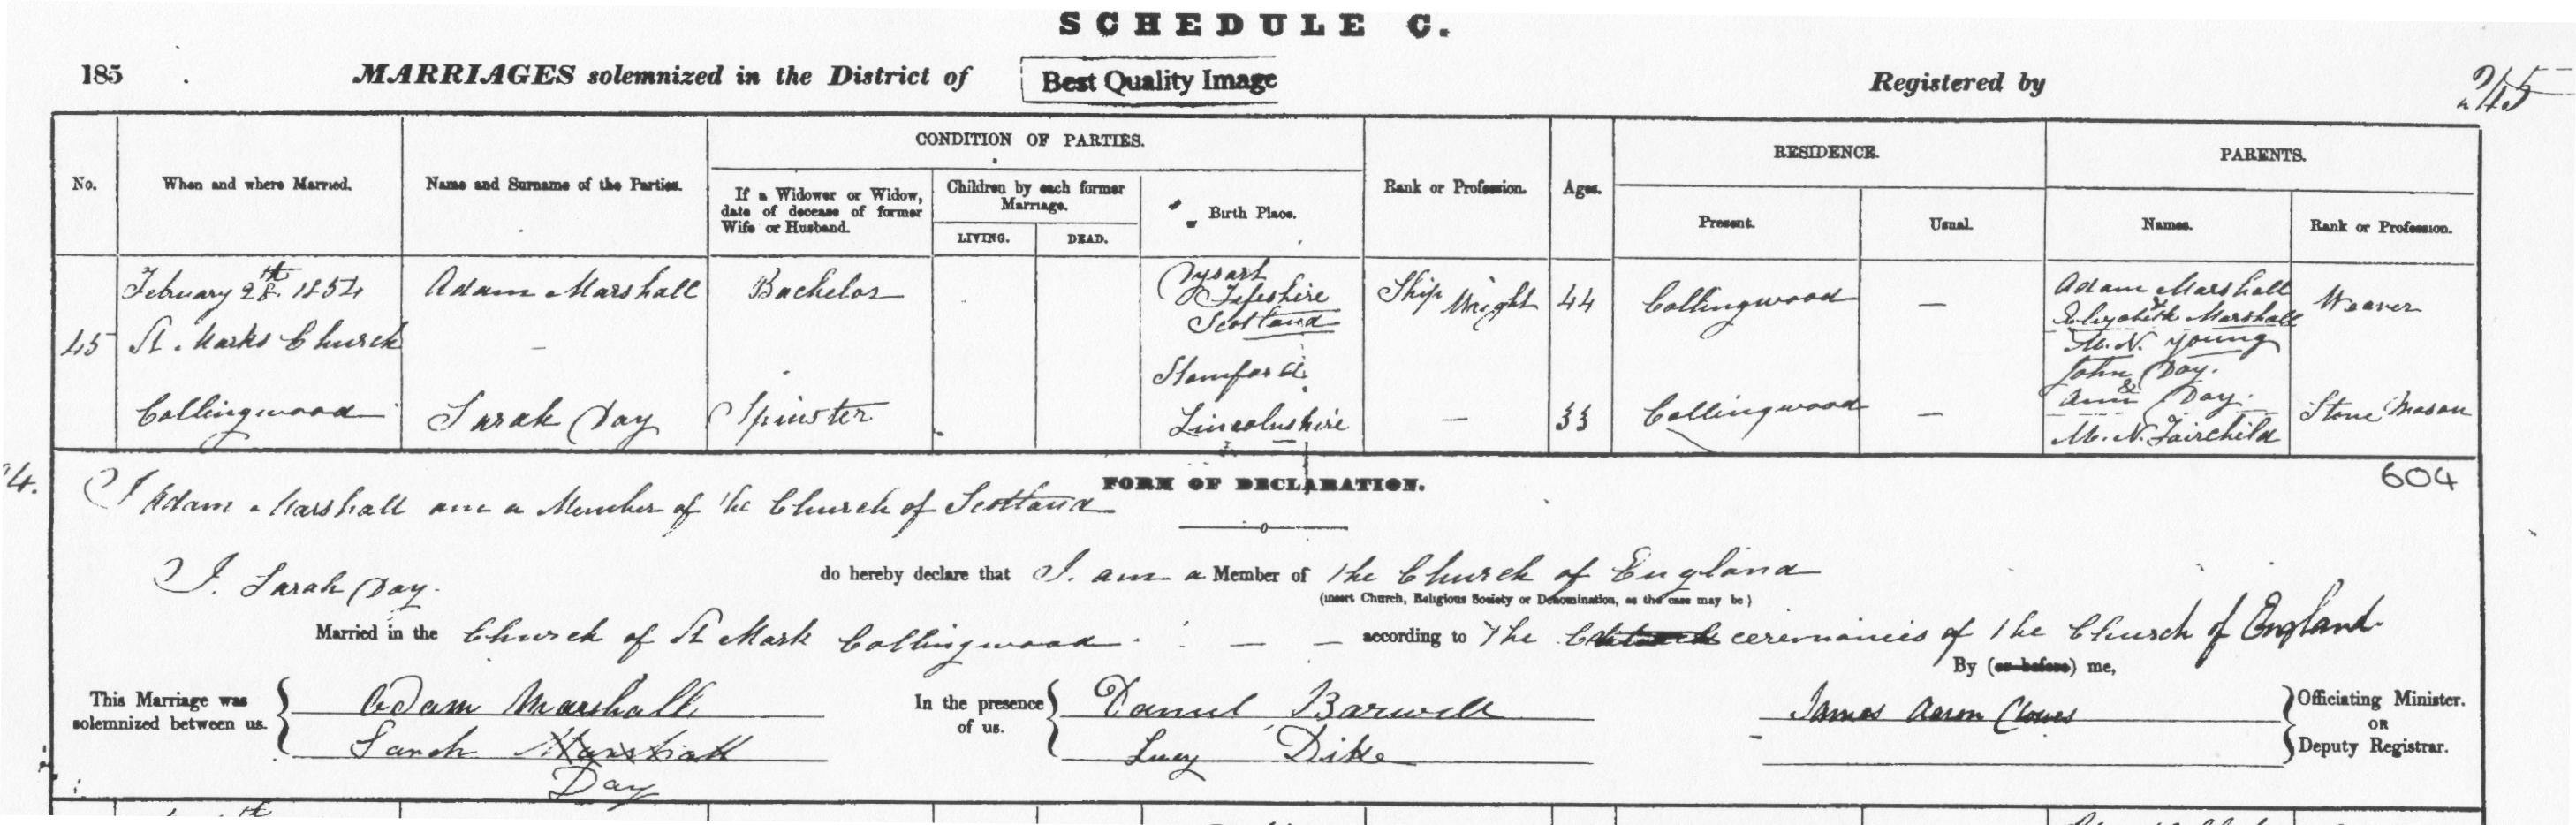 SCHEDULE C.
185 MARRIAGES solemnized in the District of Best Quality Image Registered by 245
No.
When and where Married.
Name and Surname of the Parties.
CONDITION OF PARTIES.
If a Widower or Widow, date of decease of former Wife or Husband.
Children by each former Marriage.
LIVING.
DEAD.
Birth Place.
Rank or Profession.
Ages.
RESIDENCE.
Present.
Usual.
PARENTS.
Names.
Rank or Profession.
45
February 28th 1854
St Marks Church
Collingwood
Adam Marshall
Sarah Day
Bachelor
Spinster
Dysart
Fifeshire
Scotland
Stamford
Lincolnshire
Ship Wright
44
33
Collingwood
Collingwood
Adam Marshall
&
Elizabeth Marshall
M.N. Young
John Day.
&
Ann Day.
M.N. Fairchild
Weaver
Stone Mason
4.
604
FORM OF DECLARATION.
I Adam Marshall am a Member of the Church of Scotland
I. Sarah Day. do hereby declare that I. am a Member of the Church of England
(insert Church, Religious Society or Denomination, as the case may be)
Married in the Church of St Mark Collingwood according to The ceremonies of the Church of England
By (or before) me,
This Marriage was solemnized between us.
Adam Marshall
Sarah Marshall
Day
In the presence of us.
Daniel Barwell
Lucy Dike
James Aaron Clowes
Officiating Minister.
OR
Deputy Registrar.